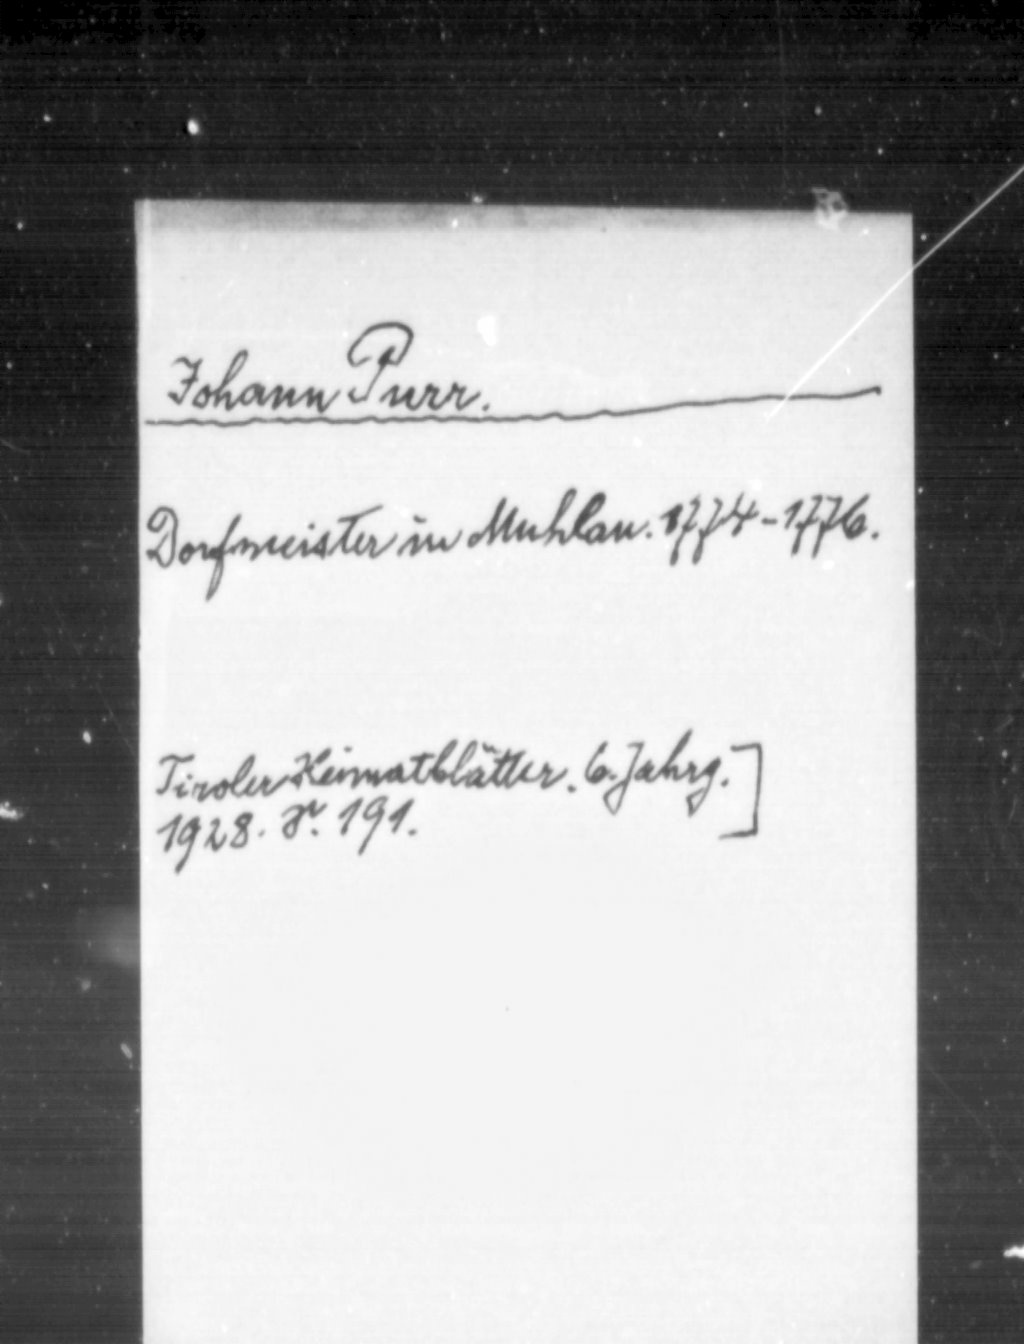 Johann Purr.
Dorfmeister in Muhlau. 1774-1776.
Tiroler Heimatblätter. 6. Jahrg.
1928. S. 191.